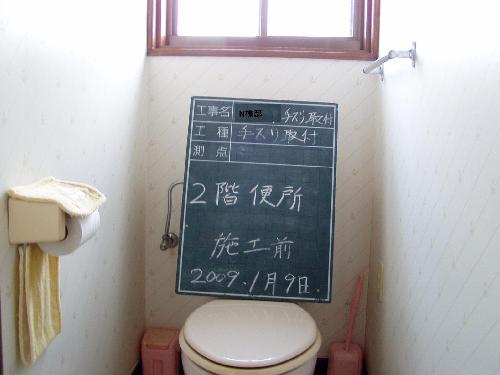 工事名 N様邸 手ズリ取付
工種 手ズリ取付
測点
2階便所
施工前
2009.1月9日.